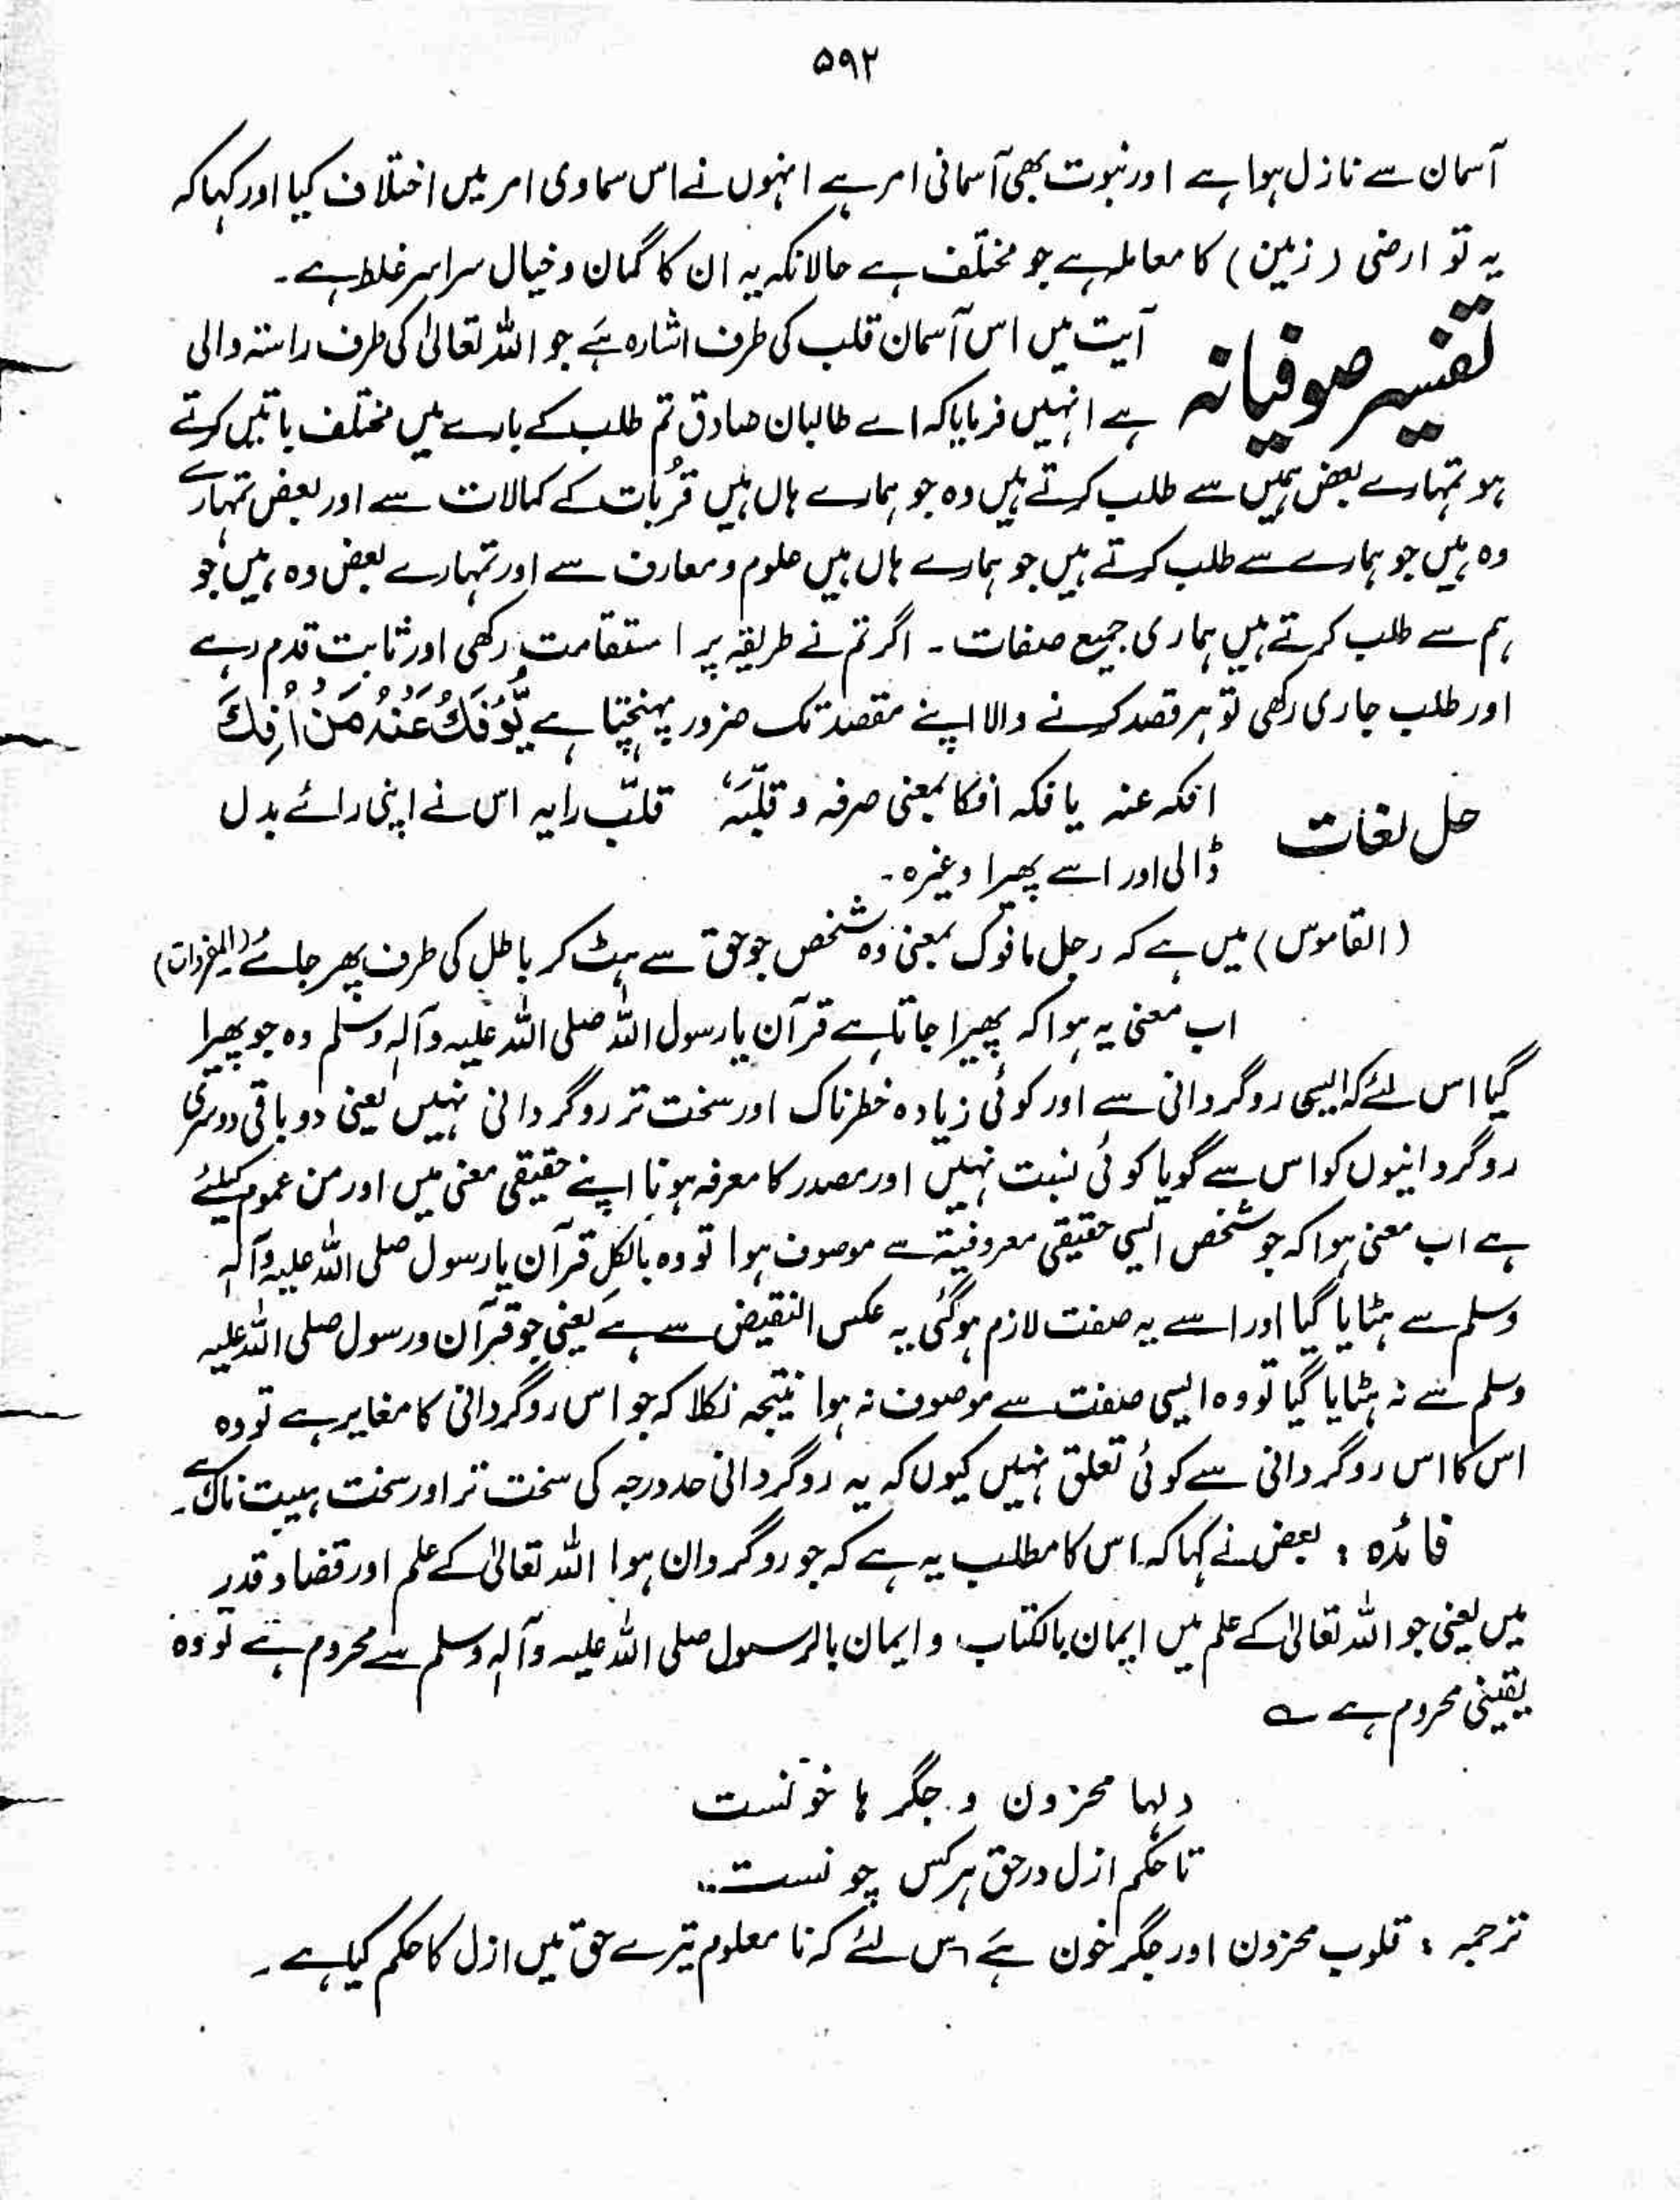 ۵۹۲
آسمان سے نازل ہوا ہے اور نبوت بھی آسمانی امر ہے انہوں نے اس سماوی امر میں اختلاف کیا اور کہا کہ
یہ تو ارضی (زمین) کا معاملہ ہے جو مختلف ہے حالانکہ یہ ان کا گمان و خیال سراسر غلط ہے۔
تفسیر صوفیانہ
آیت میں اس آسمان قلب کی طرف اشارہ ہے جو اللہ تعالیٰ کی طرف راستہ والی
ہے انہیں فرمایا کہ اے طالبان صادق تم طلب کے بارے میں مختلف باتیں کرتے
ہو تمہارے بعض ہمیں سے طلب کرتے ہیں وہ جو ہمارے ہاں ہیں قُربات کے کمالات سے اور بعض تمہارے
وہ ہیں جو ہمارے سے طلب کرتے ہیں جو ہمارے ہاں ہیں علوم و معارف سے اور تمہارے بعض وہ ہیں جو
ہم سے طلب کرتے ہیں ہماری جمیع صفات۔ اگر تم نے طریقہ پر استقامت رکھی اور ثابت قدم رہے
اور طلب جاری رکھی تو ہر قصد کرنے والا اپنے مقصد تک ضرور پہنچتا ہے یُّؤْفَكُ عَنْهُ مَنْ اُفِكَ
حل لغات
افکہ عنہ یا فکہ افکا بمعنی صرفہ و قلّبَہٗ قلّب رایہ اس نے اپنی رائے بدل
ڈالی اور اسے پھیرا وغیرہ۔
(القاموس) میں ہے کہ رجل مافوک بمعنی وہ شخص جو حق سے ہٹ کر باطل کی طرف پھر جائے (المفردات)
اب معنی یہ ہوا کہ پھیرا جاتا ہے قرآن یا رسول اللہ صلی اللہ علیہ وآلہ وسلم وہ جو پھیرا
گیا اس لئے کہ ایسی روگردانی سے اور کوئی زیادہ خطرناک اور سخت تر روگردانی نہیں یعنی دو باقی دوسری
روگردانیوں کو اس سے گویا کوئی نسبت نہیں اور مصدر کا معرفہ ہونا اپنے حقیقی معنی میں اور من عموم کیلئے
ہے اب معنی ہوا کہ جو شخص ایسی حقیقی معروفیۃ سے موصوف ہوا تو وہ بالکل قرآن یا رسول صلی اللہ علیہ وآلہ
وسلم سے ہٹایا گیا اور اسے یہ صفت لازم ہوگئی یہ عکس النقیض سے ہے یعنی جو قرآن و رسول صلی اللہ علیہ
وسلم سے نہ ہٹایا گیا تو وہ ایسی صفت سے موصوف نہ ہوا نتیجہ نکلا کہ جو اس روگردانی کا مغایر ہے تو وہ
اس کا اس روگردانی سے کوئی تعلق نہیں کیوں کہ یہ روگردانی حد درجہ کی سخت تر اور سخت ہیبت ناک ہے۔
فائدہ : بعض نے کہا کہ اس کا مطلب یہ ہے کہ جو روگردان ہوا اللہ تعالیٰ کے علم اور قضا و قدر
میں یعنی جو اللہ تعالیٰ کے علم میں ایمان بالکتاب و ایمان بالرسول صلی اللہ علیہ وآلہ وسلم سے محروم ہے تو وہ
یقینی محروم ہے ؎
دلہا محزون و جگر ہا خونست
تا حکم ازل در حق ہر کس چونست
ترجمہ : قلوب محزون اور جگر خون ہے اس لئے کہ نا معلوم تیرے حق میں ازل کا حکم کیا ہے۔